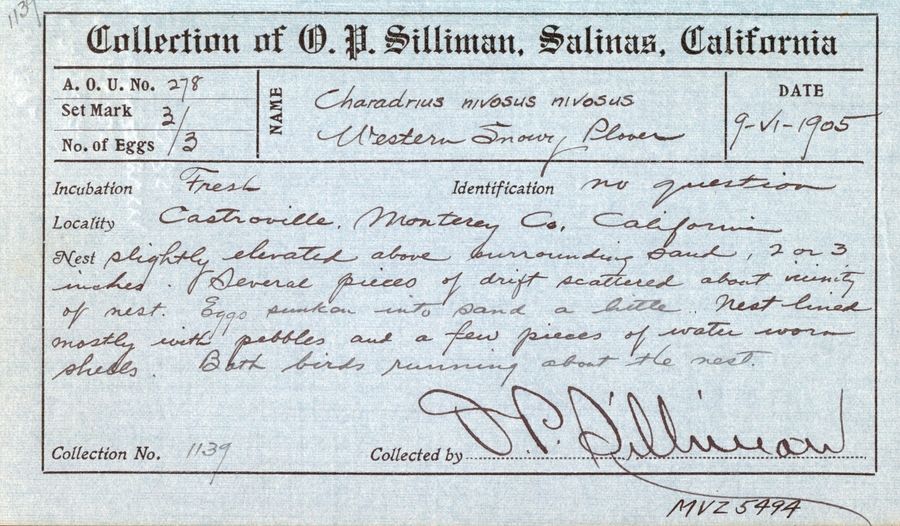 1139
Collection of O. P. Silliman, Salinas, California
A. O. U. No. 278
Set Mark 3/
No. of Eggs /3
NAME
Charadrius nivosus nivosus
Western Snowy Plover
DATE
9-VI-1905
Incubation Fresh Identification no question
Locality Castroville, Monterey Co. California
Nest slightly elevated above surrounding sand, 2 or 3
inches. Several pieces of drift scattered about vicinity
of nest. Eggs sunken into sand a little. Nest lined
mostly with pebbles and a few pieces of water worn
shells. Both birds running about the nest.
Collection No. 1139 Collected by O. P. Silliman
MVZ 5494